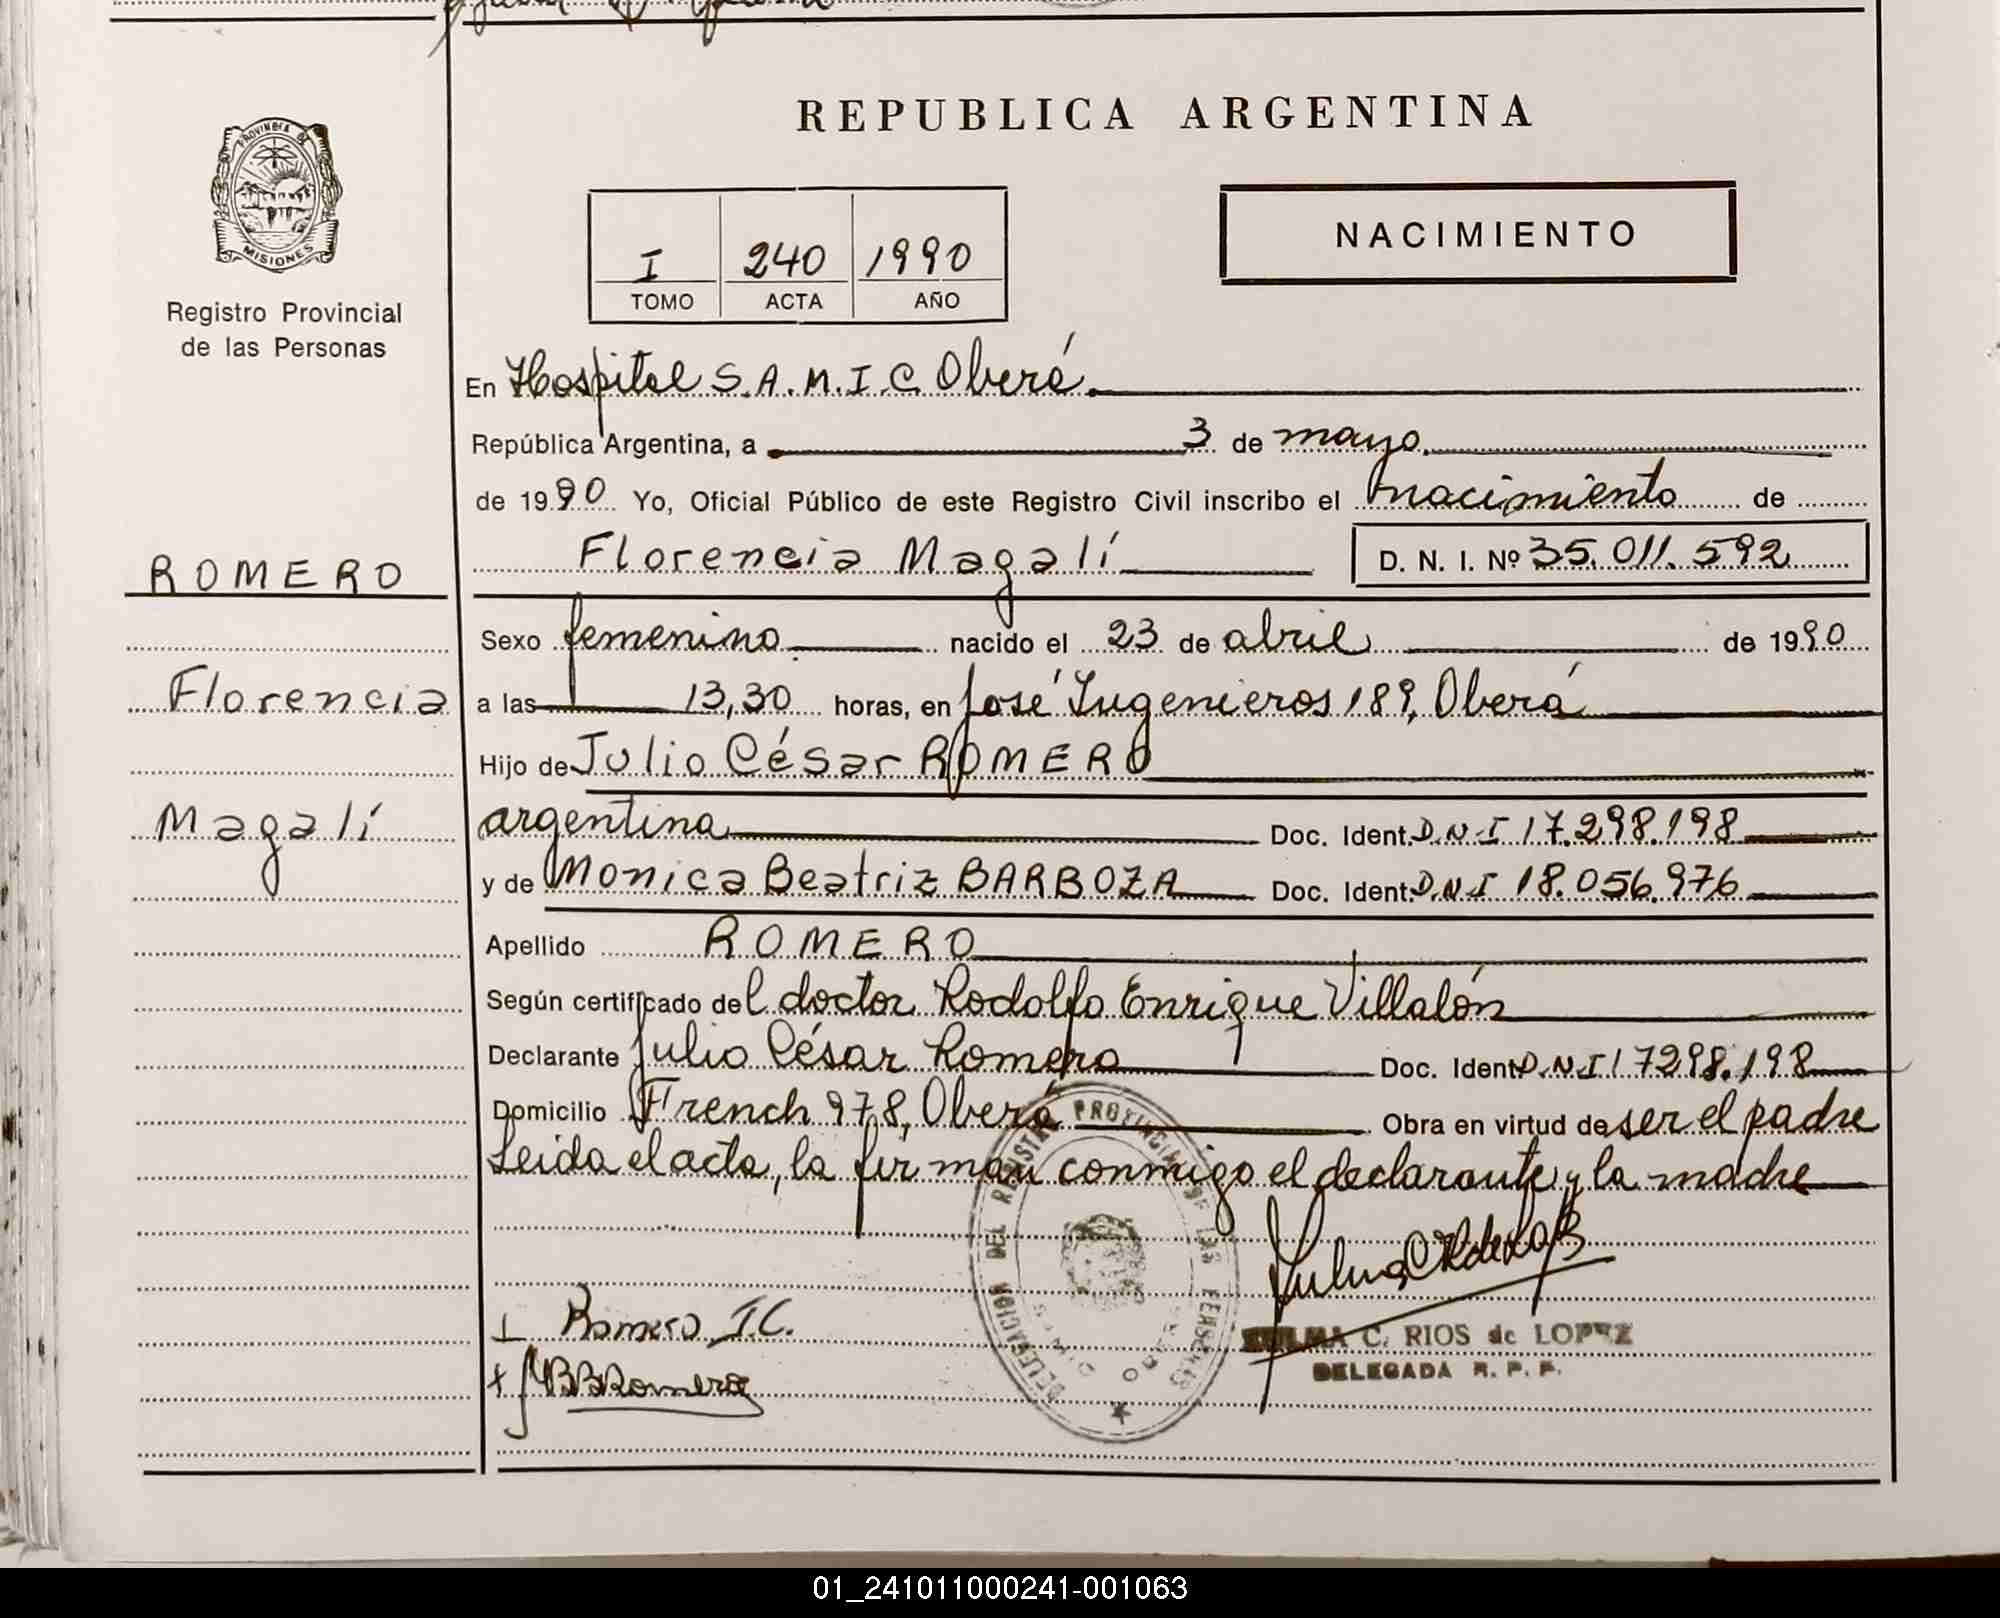 REPUBLICA ARGENTINA
PROVINCIA DE MISIONES
Registro Provincial
de las Personas
I 240 1990
TOMO ACTA AÑO
NACIMIENTO
En Hospital S.A.M.I.C. Oberá
República Argentina, a 3 de mayo
de 1990 Yo, Oficial Público de este Registro Civil inscribo el nacimiento de
Florencia Magalí D. N. I. Nº 35.011.592
ROMERO
Florencia
Magalí
Sexo femenino nacido el 23 de abril de 1990
a las 13,30 horas, en José Ingenieros 189, Oberá
Hijo de Julio César ROMERO
argentina Doc. Ident. D.N.I 17.298.198
y de Monica Beatriz BARBOZA Doc. Ident. D.N.I 18.056.976
Apellido ROMERO
Según certificado del doctor Rodolfo Enrique Villalón
Declarante Julio César Romero Doc. Ident. D.N.I 17298.198
Domicilio French 978, Oberá Obra en virtud de ser el padre
Leida el acta, la firman conmigo el declarante y la madre
DELEGACION DEL REGISTRO PROVINCIAL DE LAS PERSONAS
Romero J.C.
Romero
C. RIOS de LOPEZ
DELEGADA R. P. P.
01_241011000241-001063